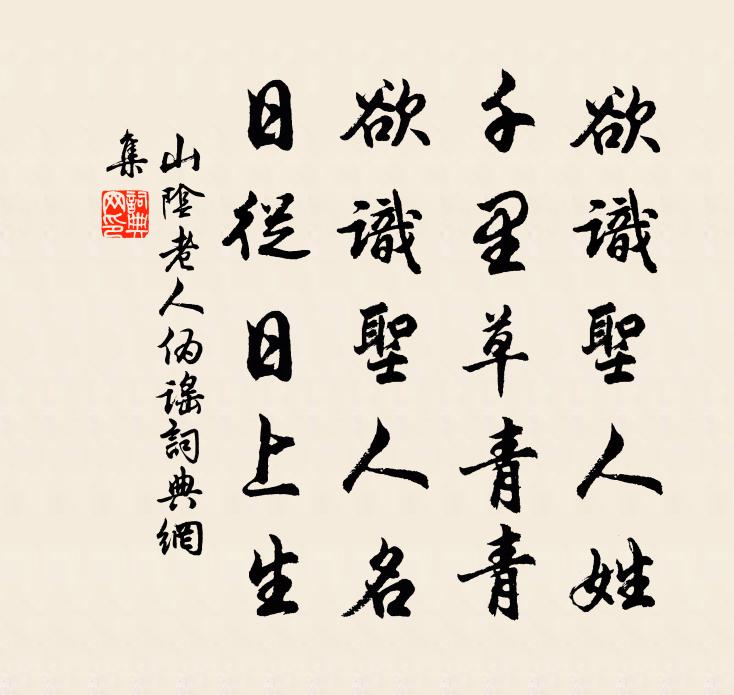 欲識聖人姓
千里草青青
欲識聖人名
日從日上生
山陰老人偽謠詞典網
集
詞典
网印